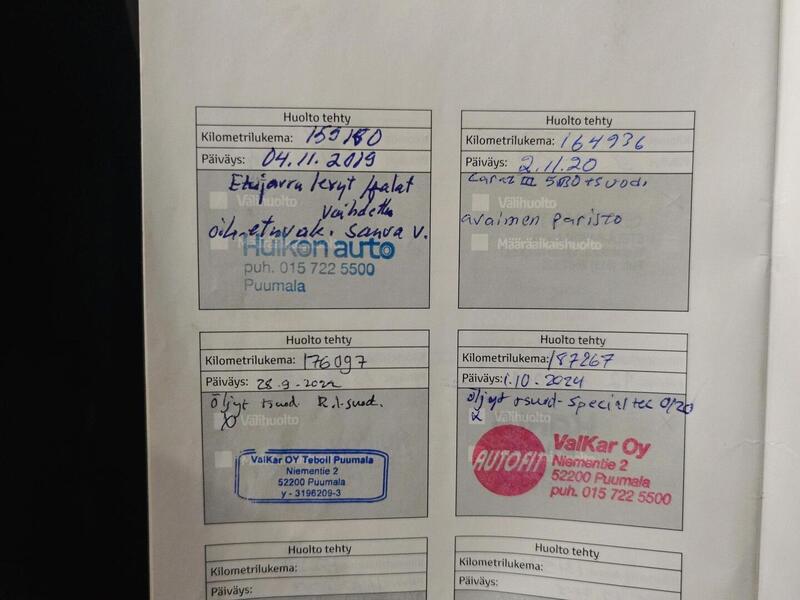 Huolto tehty
Kilometrilukema: 159180
Päiväys: 04.11.2019
Etujarru levyt /palat
Välihuolto
Vaihdettu
Määräaikaishuolto
oik. etuvak. sauva v.
Huikon auto
puh. 015 722 5500
Puumala
Huolto tehty
Kilometrilukema: 164936
Päiväys: 2.11.20
III 5W30 + suod.
Välihuolto
avaimen paristo
Määräaikaishuolto
Huolto tehty
Kilometrilukema: 176097
Päiväys: 28.9.2022
Öljyt + suod R.i-suod.
Välihuolto
ValKar OY Teboil Puumala
Niementie 2
52200 Puumala
y - 3196209-3
Huolto tehty
Kilometrilukema: 187267
Päiväys: 1.10.2024
Öljyt + suod - Special tec 0/20
Välihuolto
AUTOFIT
ValKar Oy
Niementie 2
52200 Puumala
puh. 015 722 5500
Huolto tehty
Kilometrilukema:
Päiväys:
Huolto tehty
Kilometrilukema:
Päiväys: